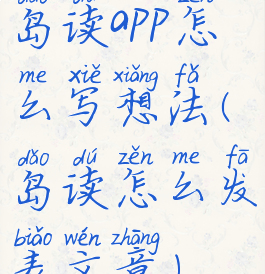 岛读app怎
me xiě xiǎng fǎ
么写想法(
dǎo dú zěn me fā
岛读怎么发
biǎo wén zhāng
表文章)